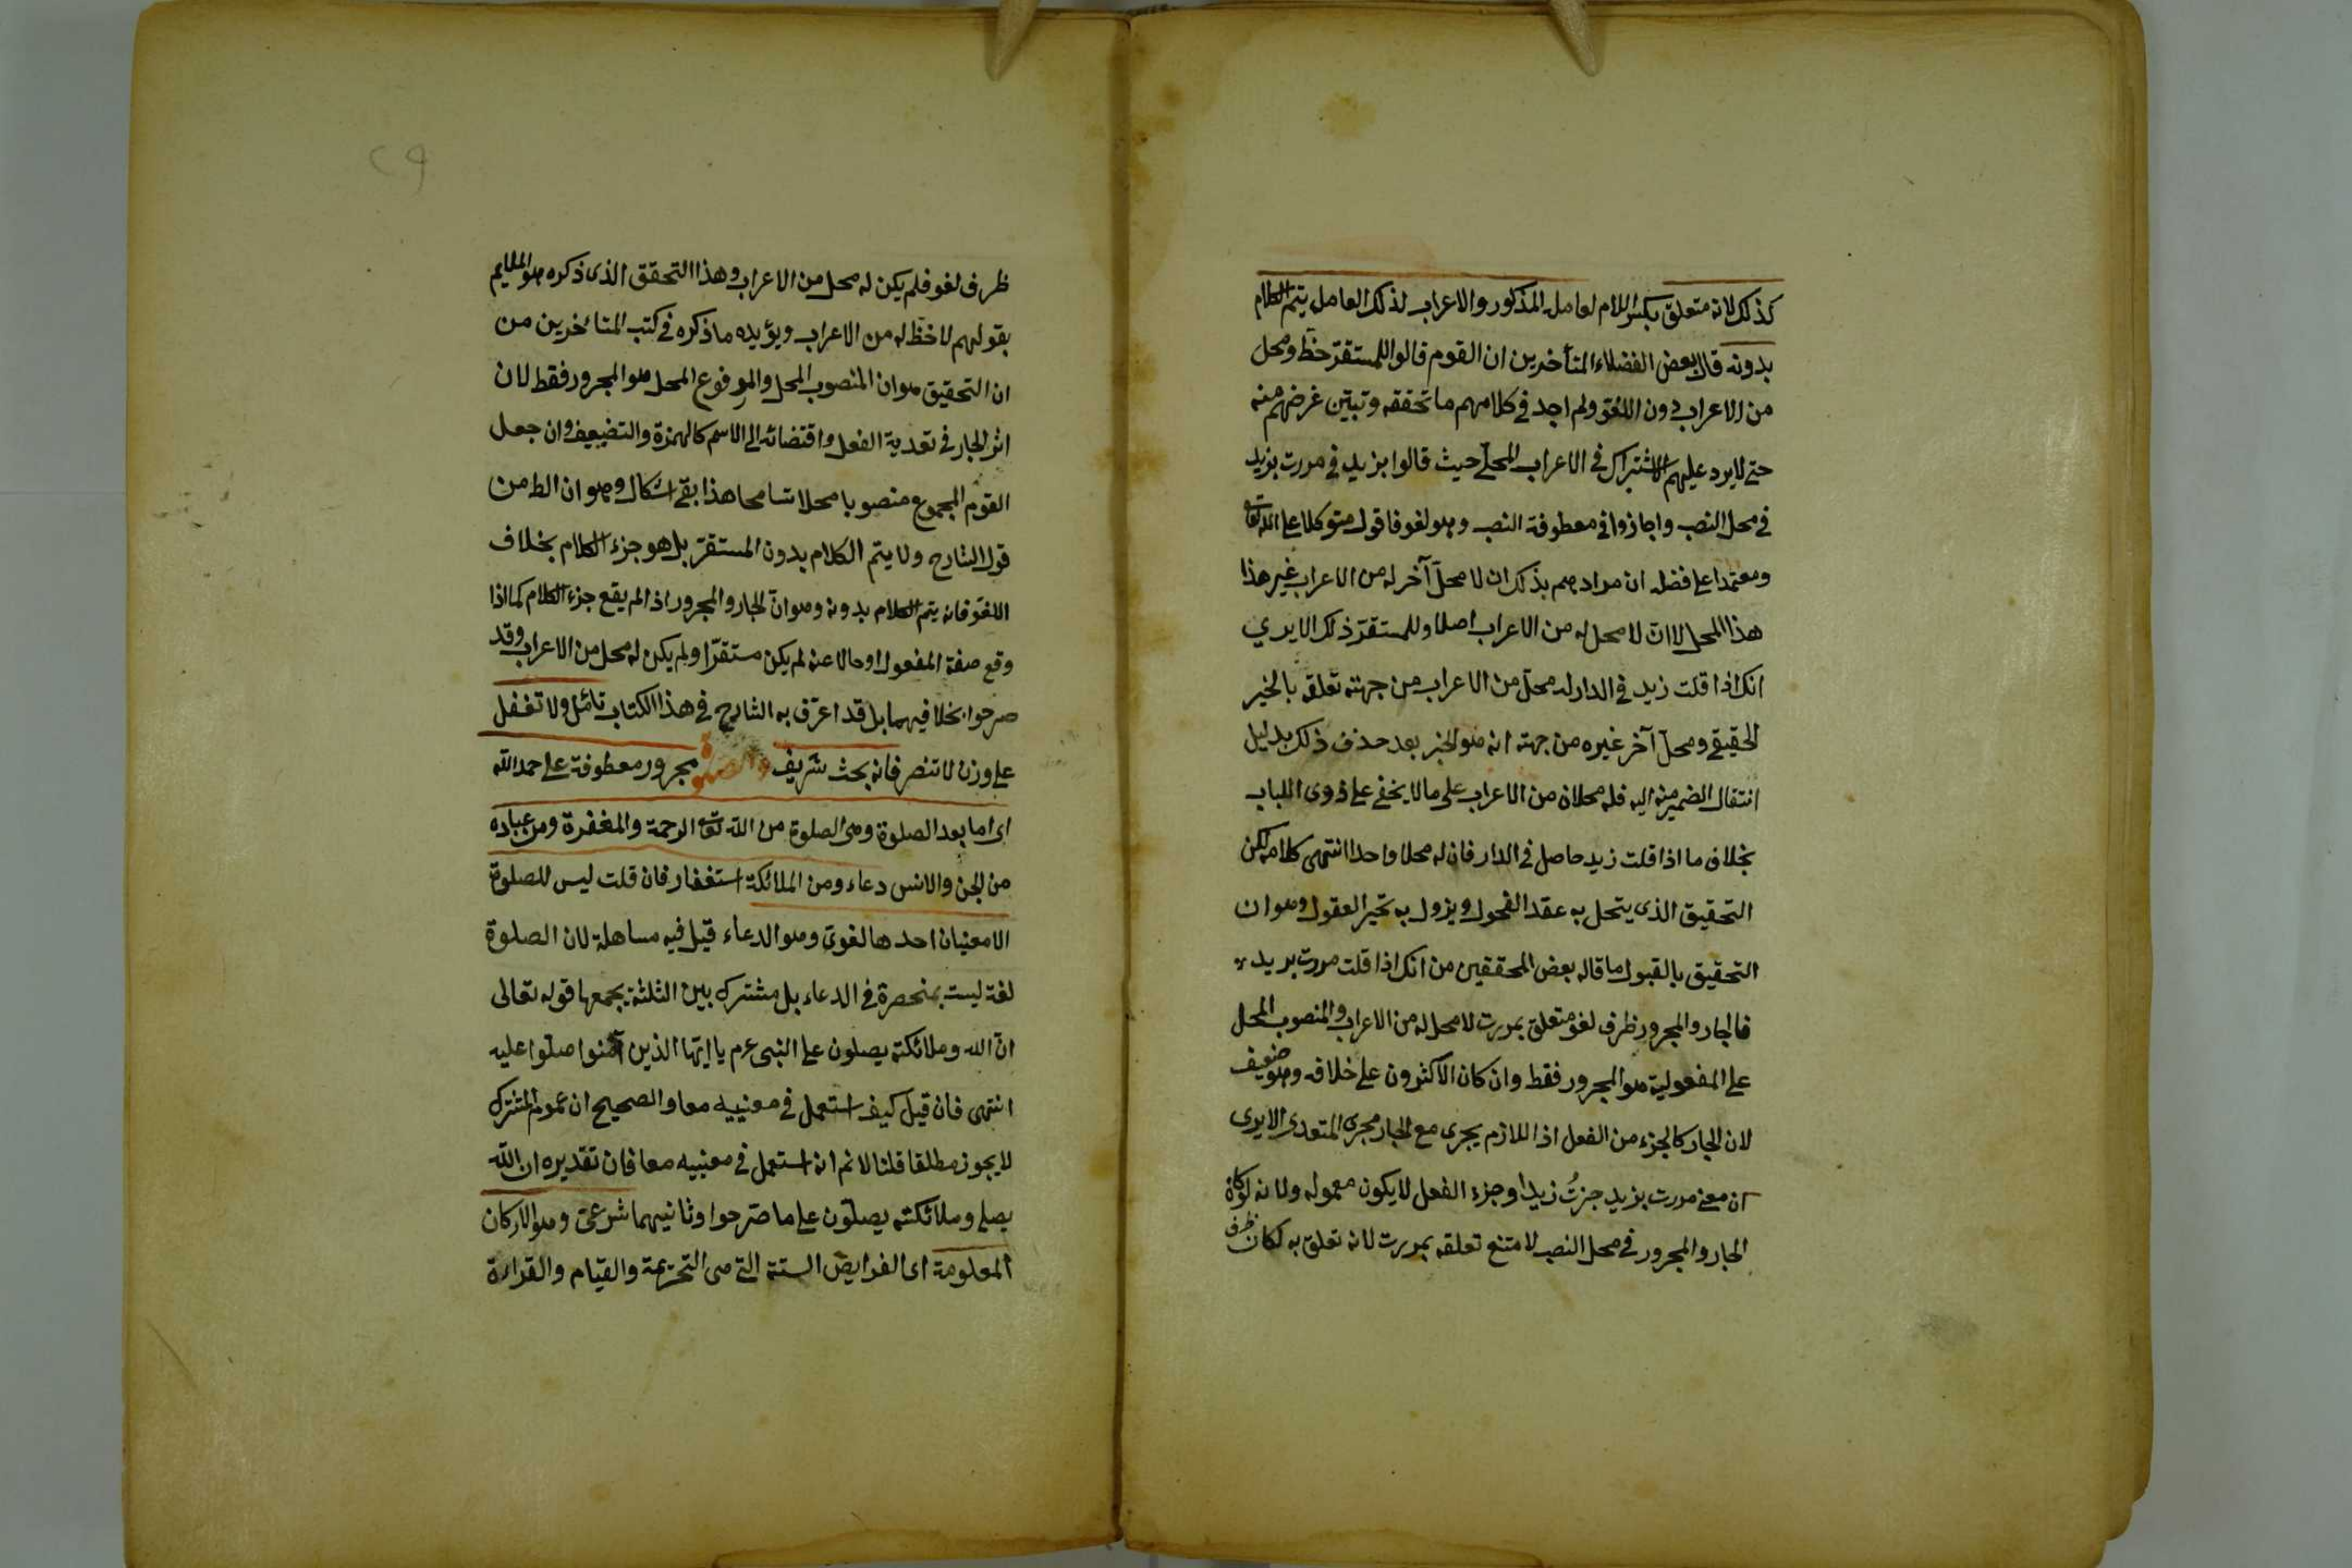 كذلك لانه متعلق بكسر اللام لعامله المذكور والاعراب لذلك العامل يتم الكلام
بدونه قال بعض الفضلاء المتأخرين ان القوم قالوا للمستقرّ حظ ومحل
من الاعراب دون اللغو ولم اجد فى كلامهم ما تحققه وتبيّن غرضهم منه
حتى لا يرد عليهم الاشتراك فى الاعراب المحلّى حيث قالوا بزيد فى مررت بزيد
فى محل النصب واجازوا فى معطوفة النصب وهو لغو فاقول متوكلا على الله تعالى
ومعتمدا على فضله ان مرادهم بذلك ان لا محلّ آخر له من الاعراب غير هذا
هذا المحل لا انّ لا محل له من الاعراب اصلا وللمستقرّ ذلك الا يرى
انك اذا قلت زيد فى الدار له محلّ من الاعراب من جهة تعلقه بالخبر
الحقيقى ومحلّ آخر غيره من جهة انه هو الخبر بعد حذف ذلك بدليل
انتقال الضمير منه اليه فله محلان من الاعراب على ما لا يخفى على ذوى الالباب
بخلاف ما اذا قلت زيد حاصل فى الدار فان له محلا واحدا انتهى كلامه لكن
التحقيق الذى يتحل به عقد الفحول ويزول به تحير العقول وهو ان
التحقيق بالقبول ما قاله بعض المحققين من انك اذا قلت مررت بزيد
فالجار والمجرور ظرف لغو متعلق بمررت لا محل له من الاعراب والمنصوب المحل
على المفعولية هو المجرور فقط وان كان الاكثرون على خلافه وهو ضعيف
لان الجار كالجزء من الفعل اذ اللازم يجرى مع الجار مجرى المتعدى الا يرى
ان معنى مررت بزيد جزتُ زيدا وجزء الفعل لا يكون معموله ولانه لو كان
الجار والمجرور فى محل النصب لامتنع تعلقه بمررت لانه تعلق به لكان ظرف
ظرف لغو فلم يكن له محل من الاعراب وهذا التحقق الذى ذكره هو الملايم
بقولهم لا حظ له من الاعراب ويؤيده ما ذكره فى كتب المتأخرين من
ان التحقيق هو ان المنصوب المحل والمرفوع المحل هو المجرور فقط لان
اثر الجار فى تعدية الفعل واقتضائه الى الاسم كالهمزة والتضعيف وان جعل
القوم المجموع منصوبا محلا تسامحا هذا بقى اشكال وهو ان الظ من
قول الشارح ولا يتم الكلام بدون المستقرّ بل هو جزء الكلام بخلاف
اللغو فانه يتم الكلام بدونه وهو انّ الجار والمجرور اذا لم يقع جزء الكلام كما اذا
وقع صفة المفعول او حالا عنه لم يكن مستقرّا ولم يكن له محل من الاعراب وقد
صرحوا بخلافيهما بل قد اعترف به الشارح فى هذا الكتاب تأمل ولا تغفل
على وزن لا تنصر فانه بحث شريف والصلوة مجرور معطوفة على حمد الله
اى اما بعد الصلوة وهى الصلوة من الله تعالى الرحمة والمغفرة ومن عباده
من الجن والانس دعاء ومن الملائكة استغفار فان قلت ليس للصلوة
الا معنيان احدها لغوىّ وهو الدعاء قيل فيه مساهلة لان الصلوة
لغة ليست بمنحصرة فى الدعاء بل مشترك بين الثلثة يجمعها قوله تعالى
انّ الله وملائكته يصلون على النبى عرم يا ايّها الذين آمنوا صلّوا عليه
انتهى فان قيل كيف استعمل فى معنييه معا والصحيح ان عموم المشترك
لا يجوز مطلقا قلنا لا نم انه استعمل فى معنييه معا فان تقديره ان الله
يصلى وملائكته يصلّون على ما صرّحوا وثانيهما شرعىّ وهو الاركان
المعلومة اى الفرايض الستة التى هى التحريمة والقيام والقراءة